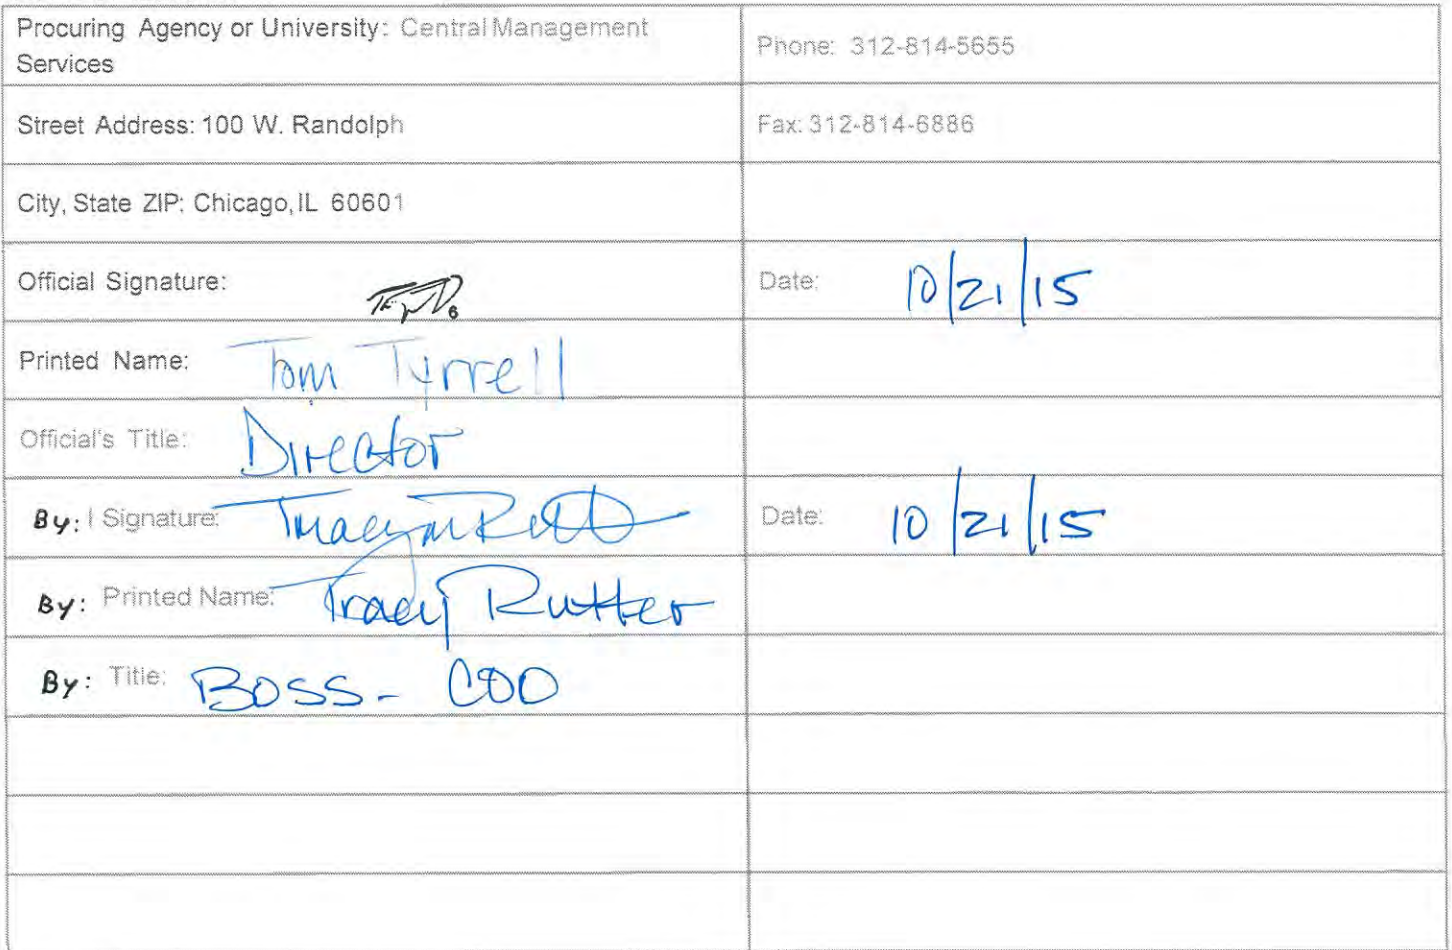 Procuring Agency or University: Central Management
Services
Phone: 312-814-5655
Street Address: 100 W. Randolph
Fax: 312-814-6886
City, State ZIP: Chicago, IL 60601
Official Signature:
Date: 10/21/15
Printed Name: Tom Tyrrell
Official's Title: Director
By: Signature: Tracy Rutter
Date: 10/21/15
By: Printed Name: Tracy Rutter
By: Title: BOSS - COO